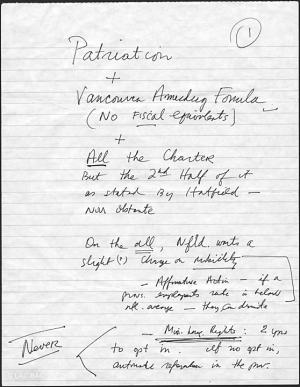 1
Patriation
+
Vancouver Amending Formula
(No Fiscal equivalents)
+
All the Charter
But the 2nd Half of it
as stated By Hatfield —
Non Obstante
On the all, Nfld. wants a
slight (?) change on mobility
— Affirmative Action — if a
prov. employmt rate is below
ntl. average — they can discrimin
— Min. Lang. Rights: 2 yrs
to opt in. If no opt in,
automatic referendum in the prov.
Never